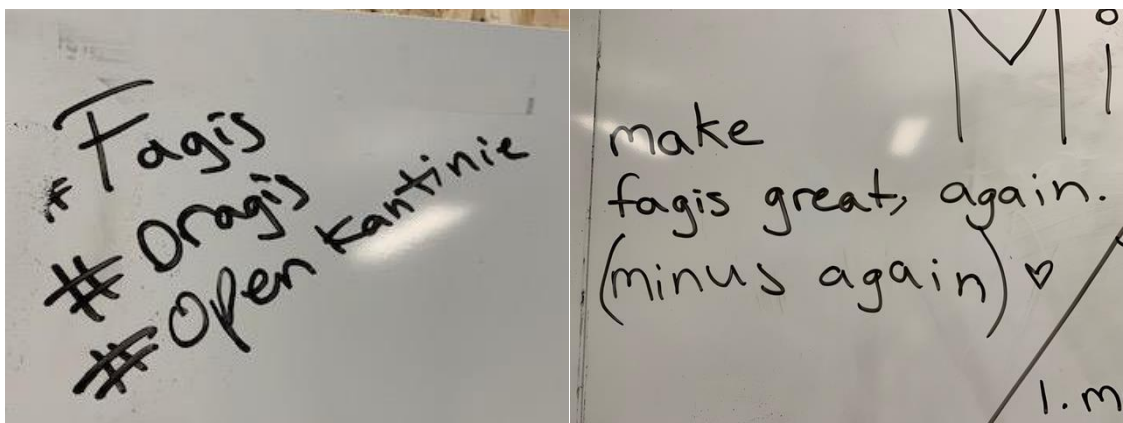 # Fagis
# Dragis
# Open kantinie
Mi
make
fagis great, again.
(minus again) ♡
1. m